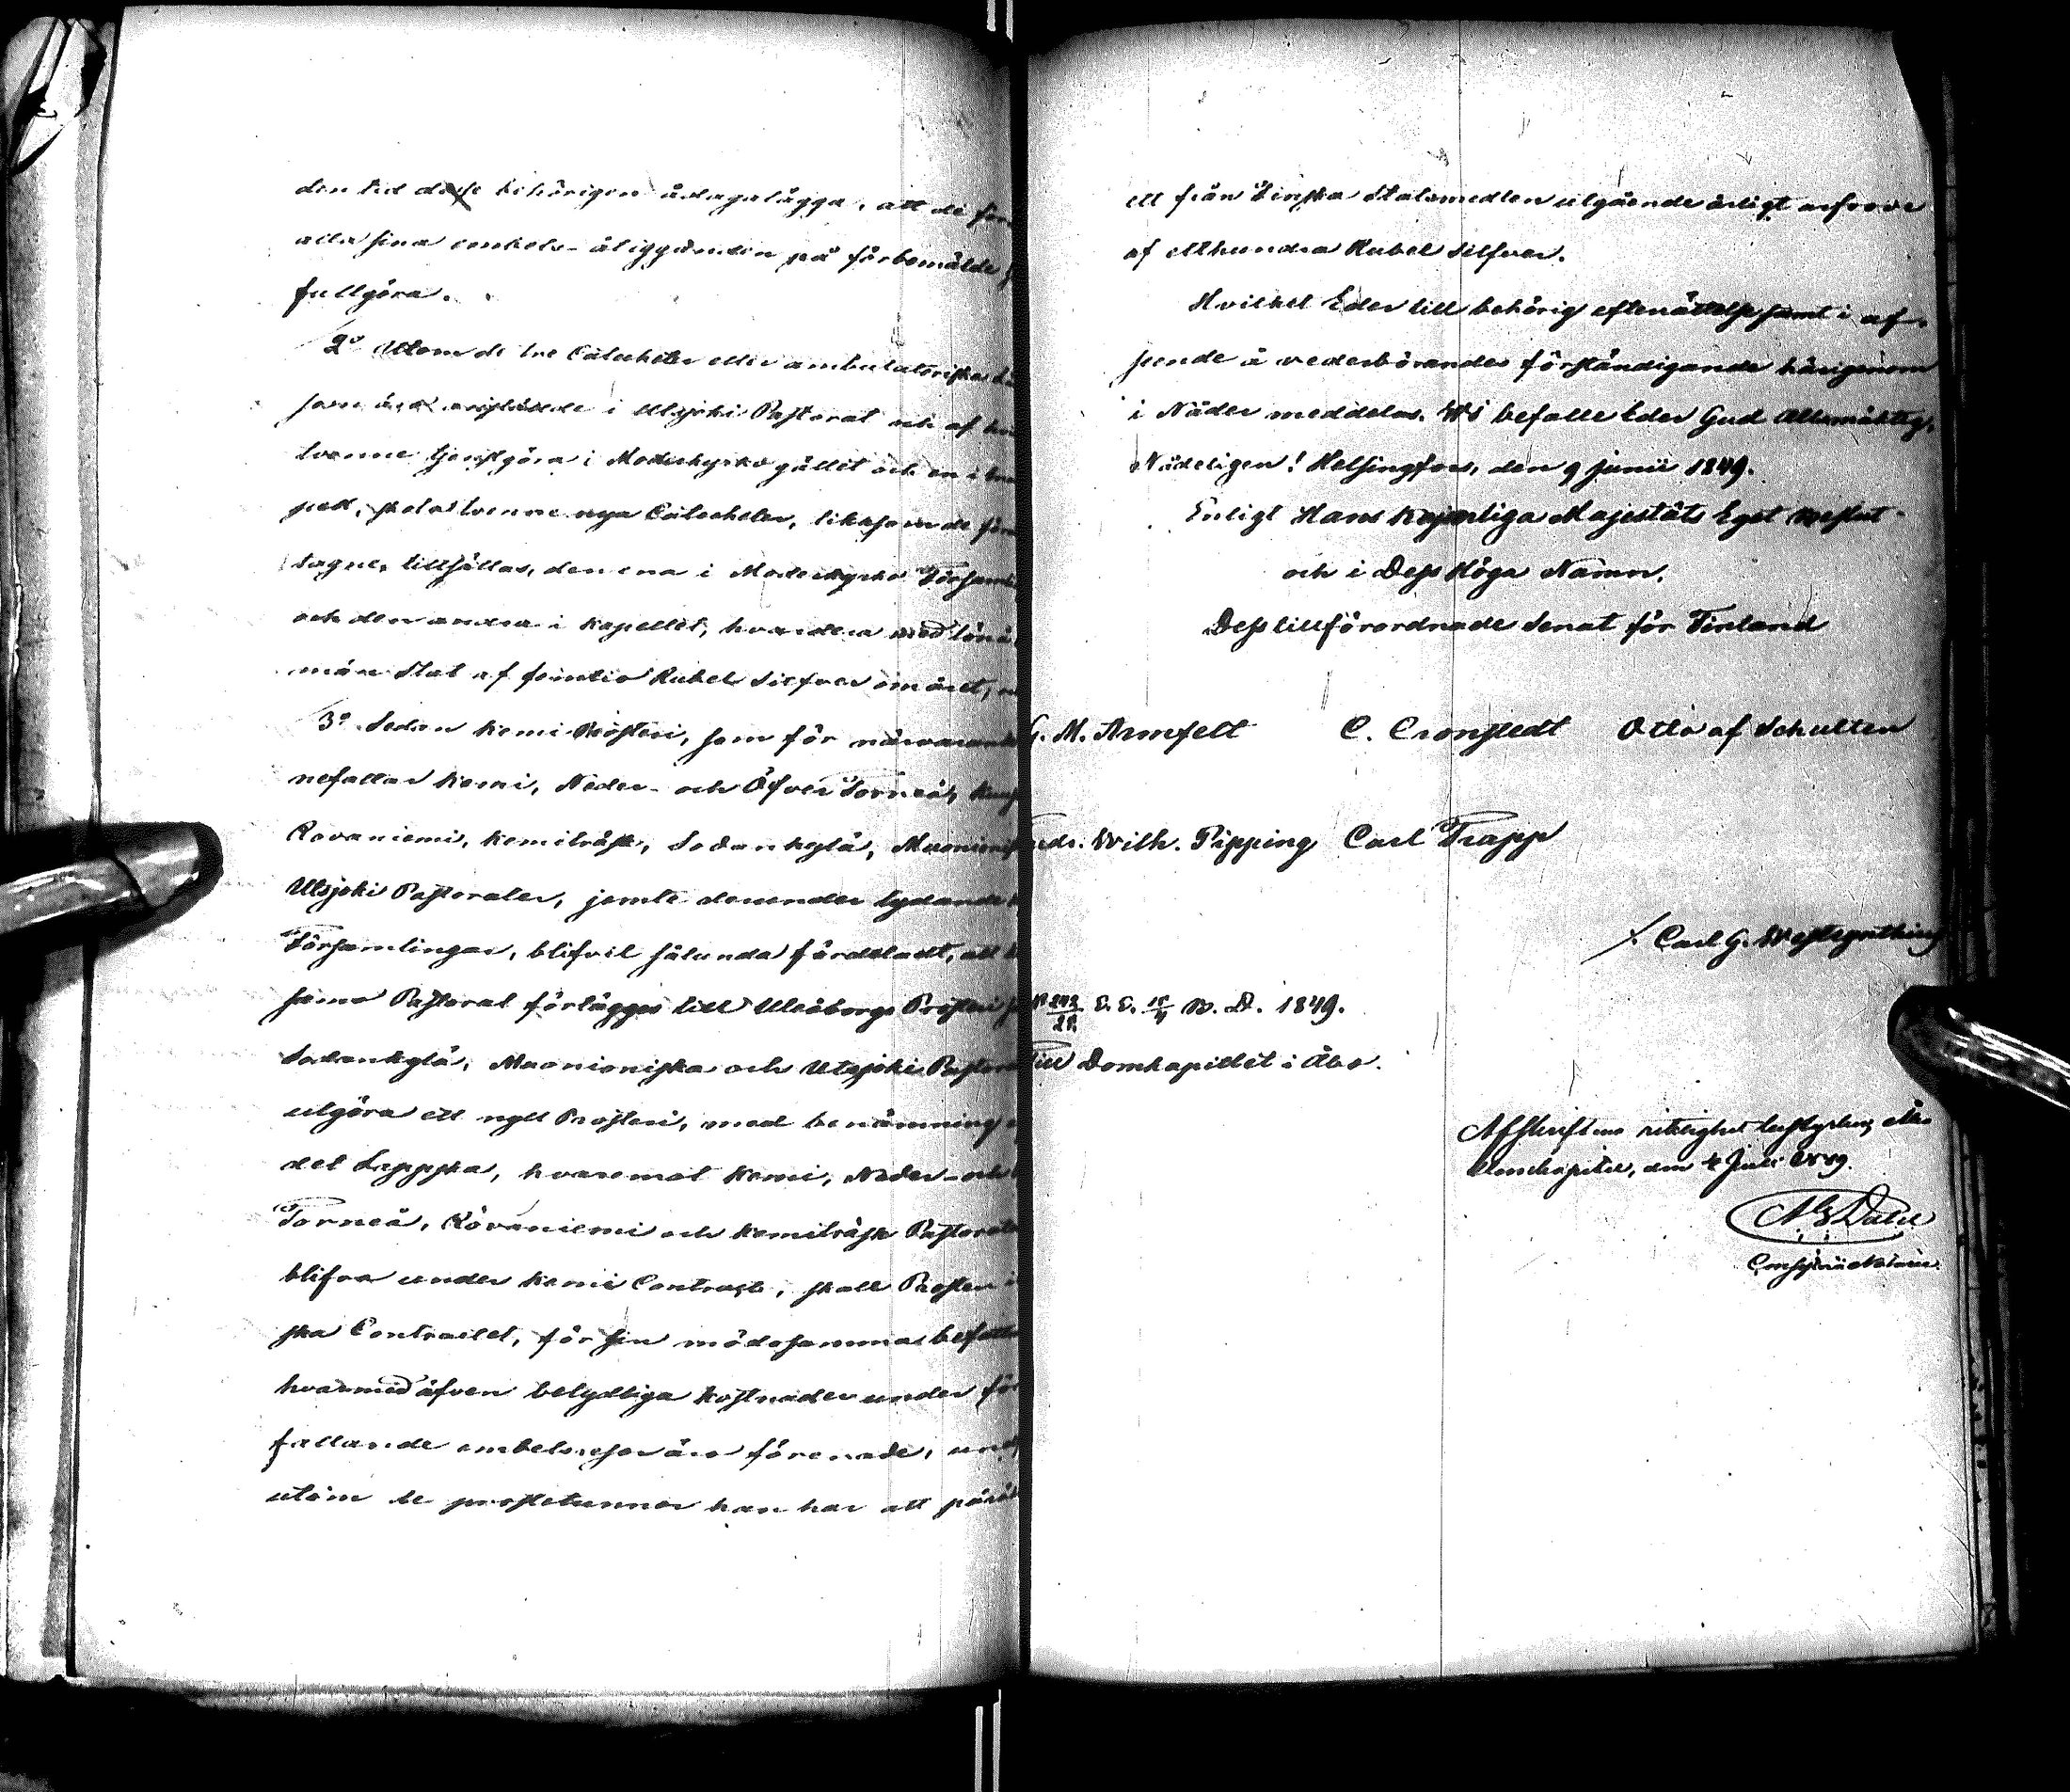 den tid desse behörigen ådagalägga, att de
alla sina embets-åligganden på förbemälde
fullgöra.
2o Utom de tre Catecheter eller ambulatoriska
som äro anstälde i Utsjoki Pastorat och af
tvenne tjenstgöra i Moderkyrko gället och en i
pell, skola tvenne nya Catecheter, likasom de
tagne, tillsättas, den ena i Moderkyrko
och den andra i Kapellet, hvardera med
stat af femtio Rubel Silfver om året,
3o Sedan Kemi Prosteri, som för närvarande
nefattar Kemi, Neder- och Öfver Torneå,
Rovaniemi, Kemiträsk, Sodankylä,
Utsjoki Pastorater, jemte derunder lydande
Församlingar, blifvit sålunda fördeladt, att
samo Pastorat förlägges till Uleåborgs Prosteri
Sodankylä, Muonioniska och Utsjoki
utgöra ett nytt Prosteri, med benämning
det Lappska, hvaremot Kemi, Neder- och
Torneå, Rovaniemi och Kemiträsk
blifva under Kemi Contract, skall Prosten i
ska Contractet, för sin mödosamma
hvarmed äfven betydliga kostnader under
fallande embetsresor äro förenade,
utom de prostetunnor han har att
ett från Finska Statsmedlen utgående årligt arfvode
af etthundra Rubel Silfver.
Hvilket Eder till behörig efterrättelse samt i af-
seende å vederbörandes förständigande härigenom
i Nåder meddelas. Wi befalle Eder Gud Allsmäktig,
Nådeligen! Helsingfors, den 9 Junii 1849.
Enligt Hans Kejserliga Majestäts Eget Beslut
och i Dess Höga Namn,
Dess tillförordnade Senat för Finland
G. M. Armfelt C. Cronstedt Otto af Schulten
Wilh. Pipping Carl Trapp
Carl G.
E. E. B. D. 1849.
Till Domkapitlet i Åbo.
Afskriftens riktighet betygar, Åbo
Domkapitel, den 4 Juli 1849.
Dahl
Consistorii Notarie.